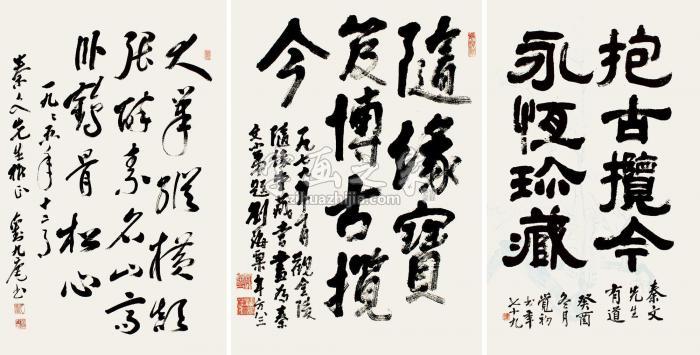 大筆縱橫顛
張醉素名山高
卧鶴骨松心
一九八六年十二月
秦文先生雅正 九庵书
隨緣寶
笈博古攬
今
一九七八年十月觀金陵
隨緣堂藏書畫為秦
文小弟題劉海粟年方八三
抱古攬今
永恆珍藏
秦文
先生
有道
癸酉
冬月
七十九